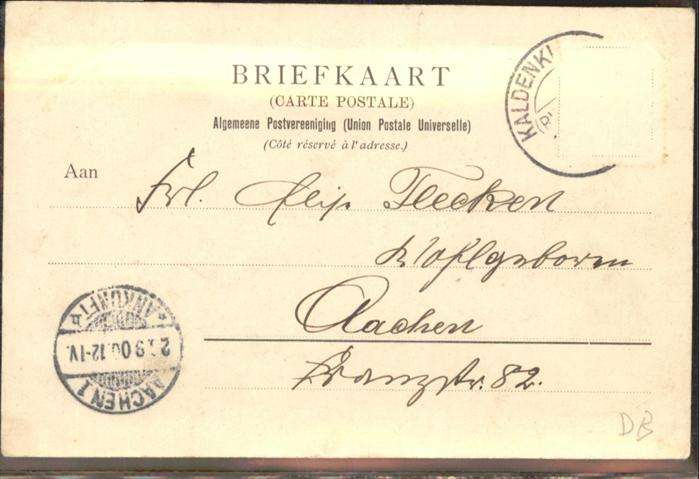 BRIEFKAART
(CARTE POSTALE)
Algemeene Postvereeniging (Union Postale Universelle)
(Côté réservé à l'adresse.)
KALDENKI
Aan Frl. Flecken
Wohlgeboren
Aachen
Franzstr. 82.
* ANKUNFT *
.9.0 .12-1V.
AACHEN 1
DB